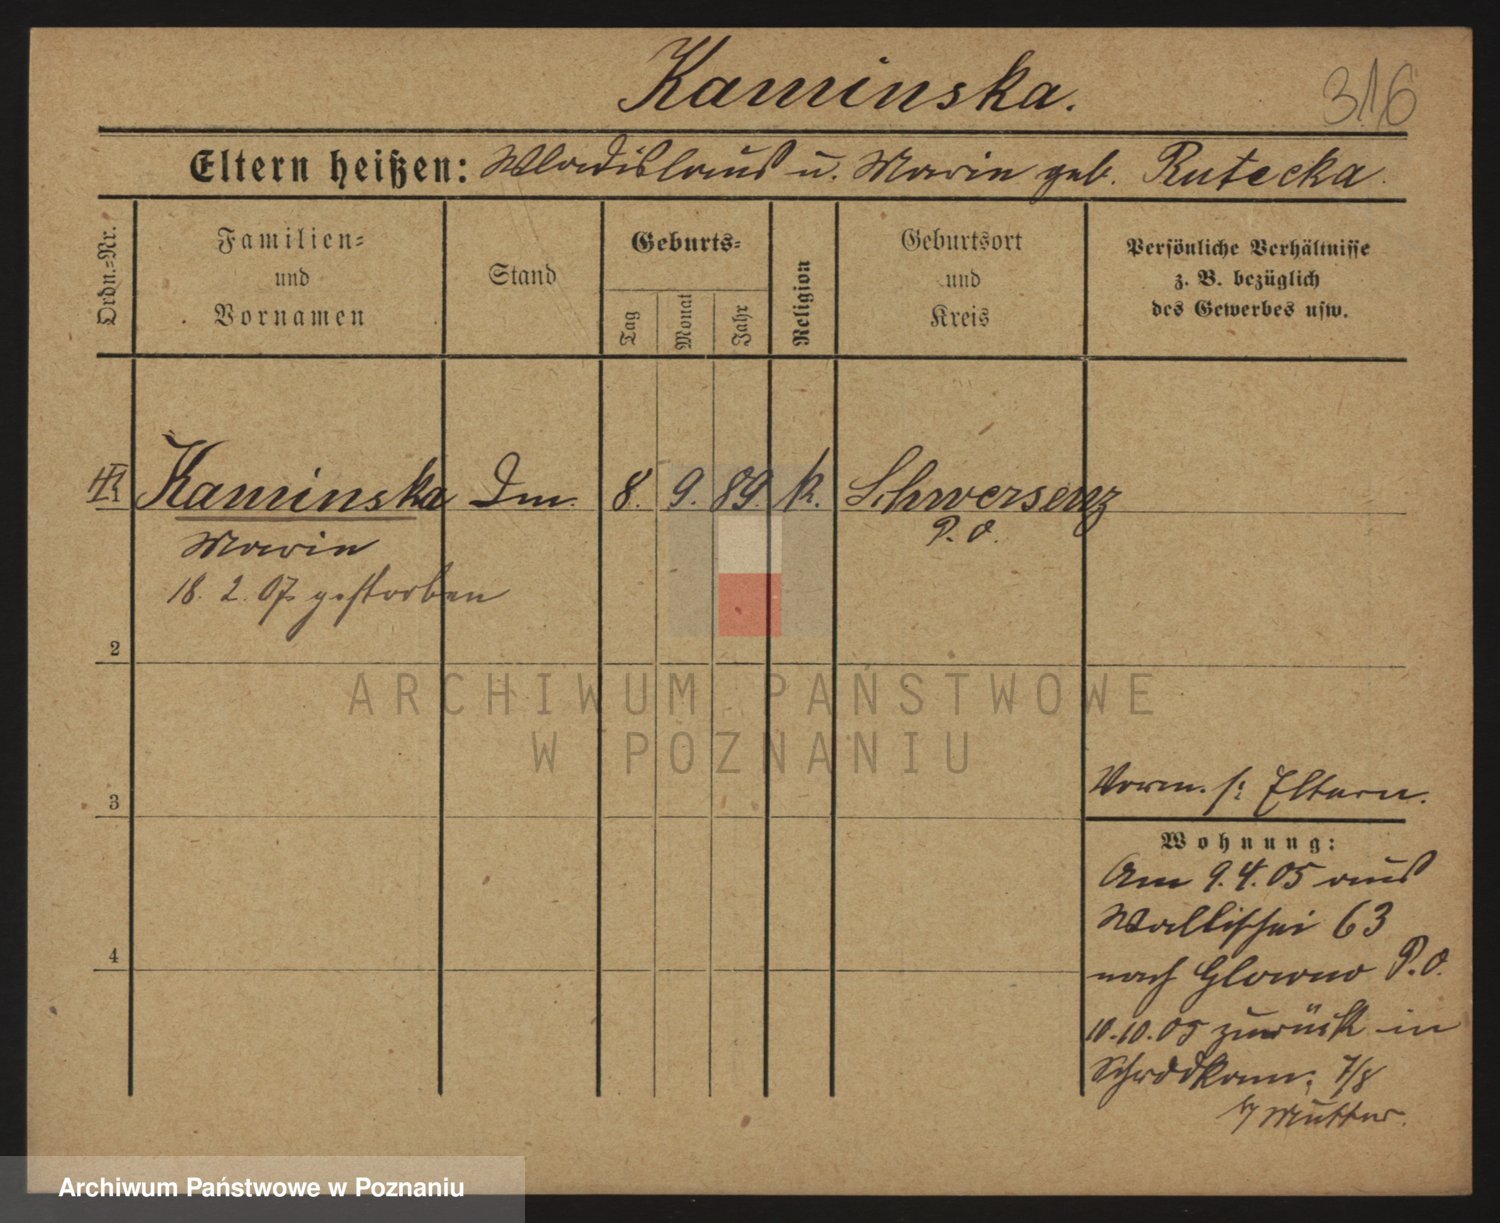 Kaminska.
316
Eltern heißen: Wladislaus u. Marie geb. Rutecka.
Ordn.=Nr.
Familien=
und
Vornamen
Stand
Geburts=
Tag
Monat
Jahr
Religion
Geburtsort
und
Kreis
Persönliche Verhältnisse
z. B. bezüglich
des Gewerbes usw.
Kaminska
Marie
18. 2. 07 gestorben
8. 9. 89. k.
Schwersenz
P. O.
2
3
4
ARCHIWUM PAŃSTWOWE
W POZNANIU
Vorm. s: Eltern.
Wohnung:
Am 9.4.05 aus
Wallischei 63
nach Glowno P.O.
10.10.05 zurück in
7/8
Mutter.
Archiwum Państwowe w Poznaniu